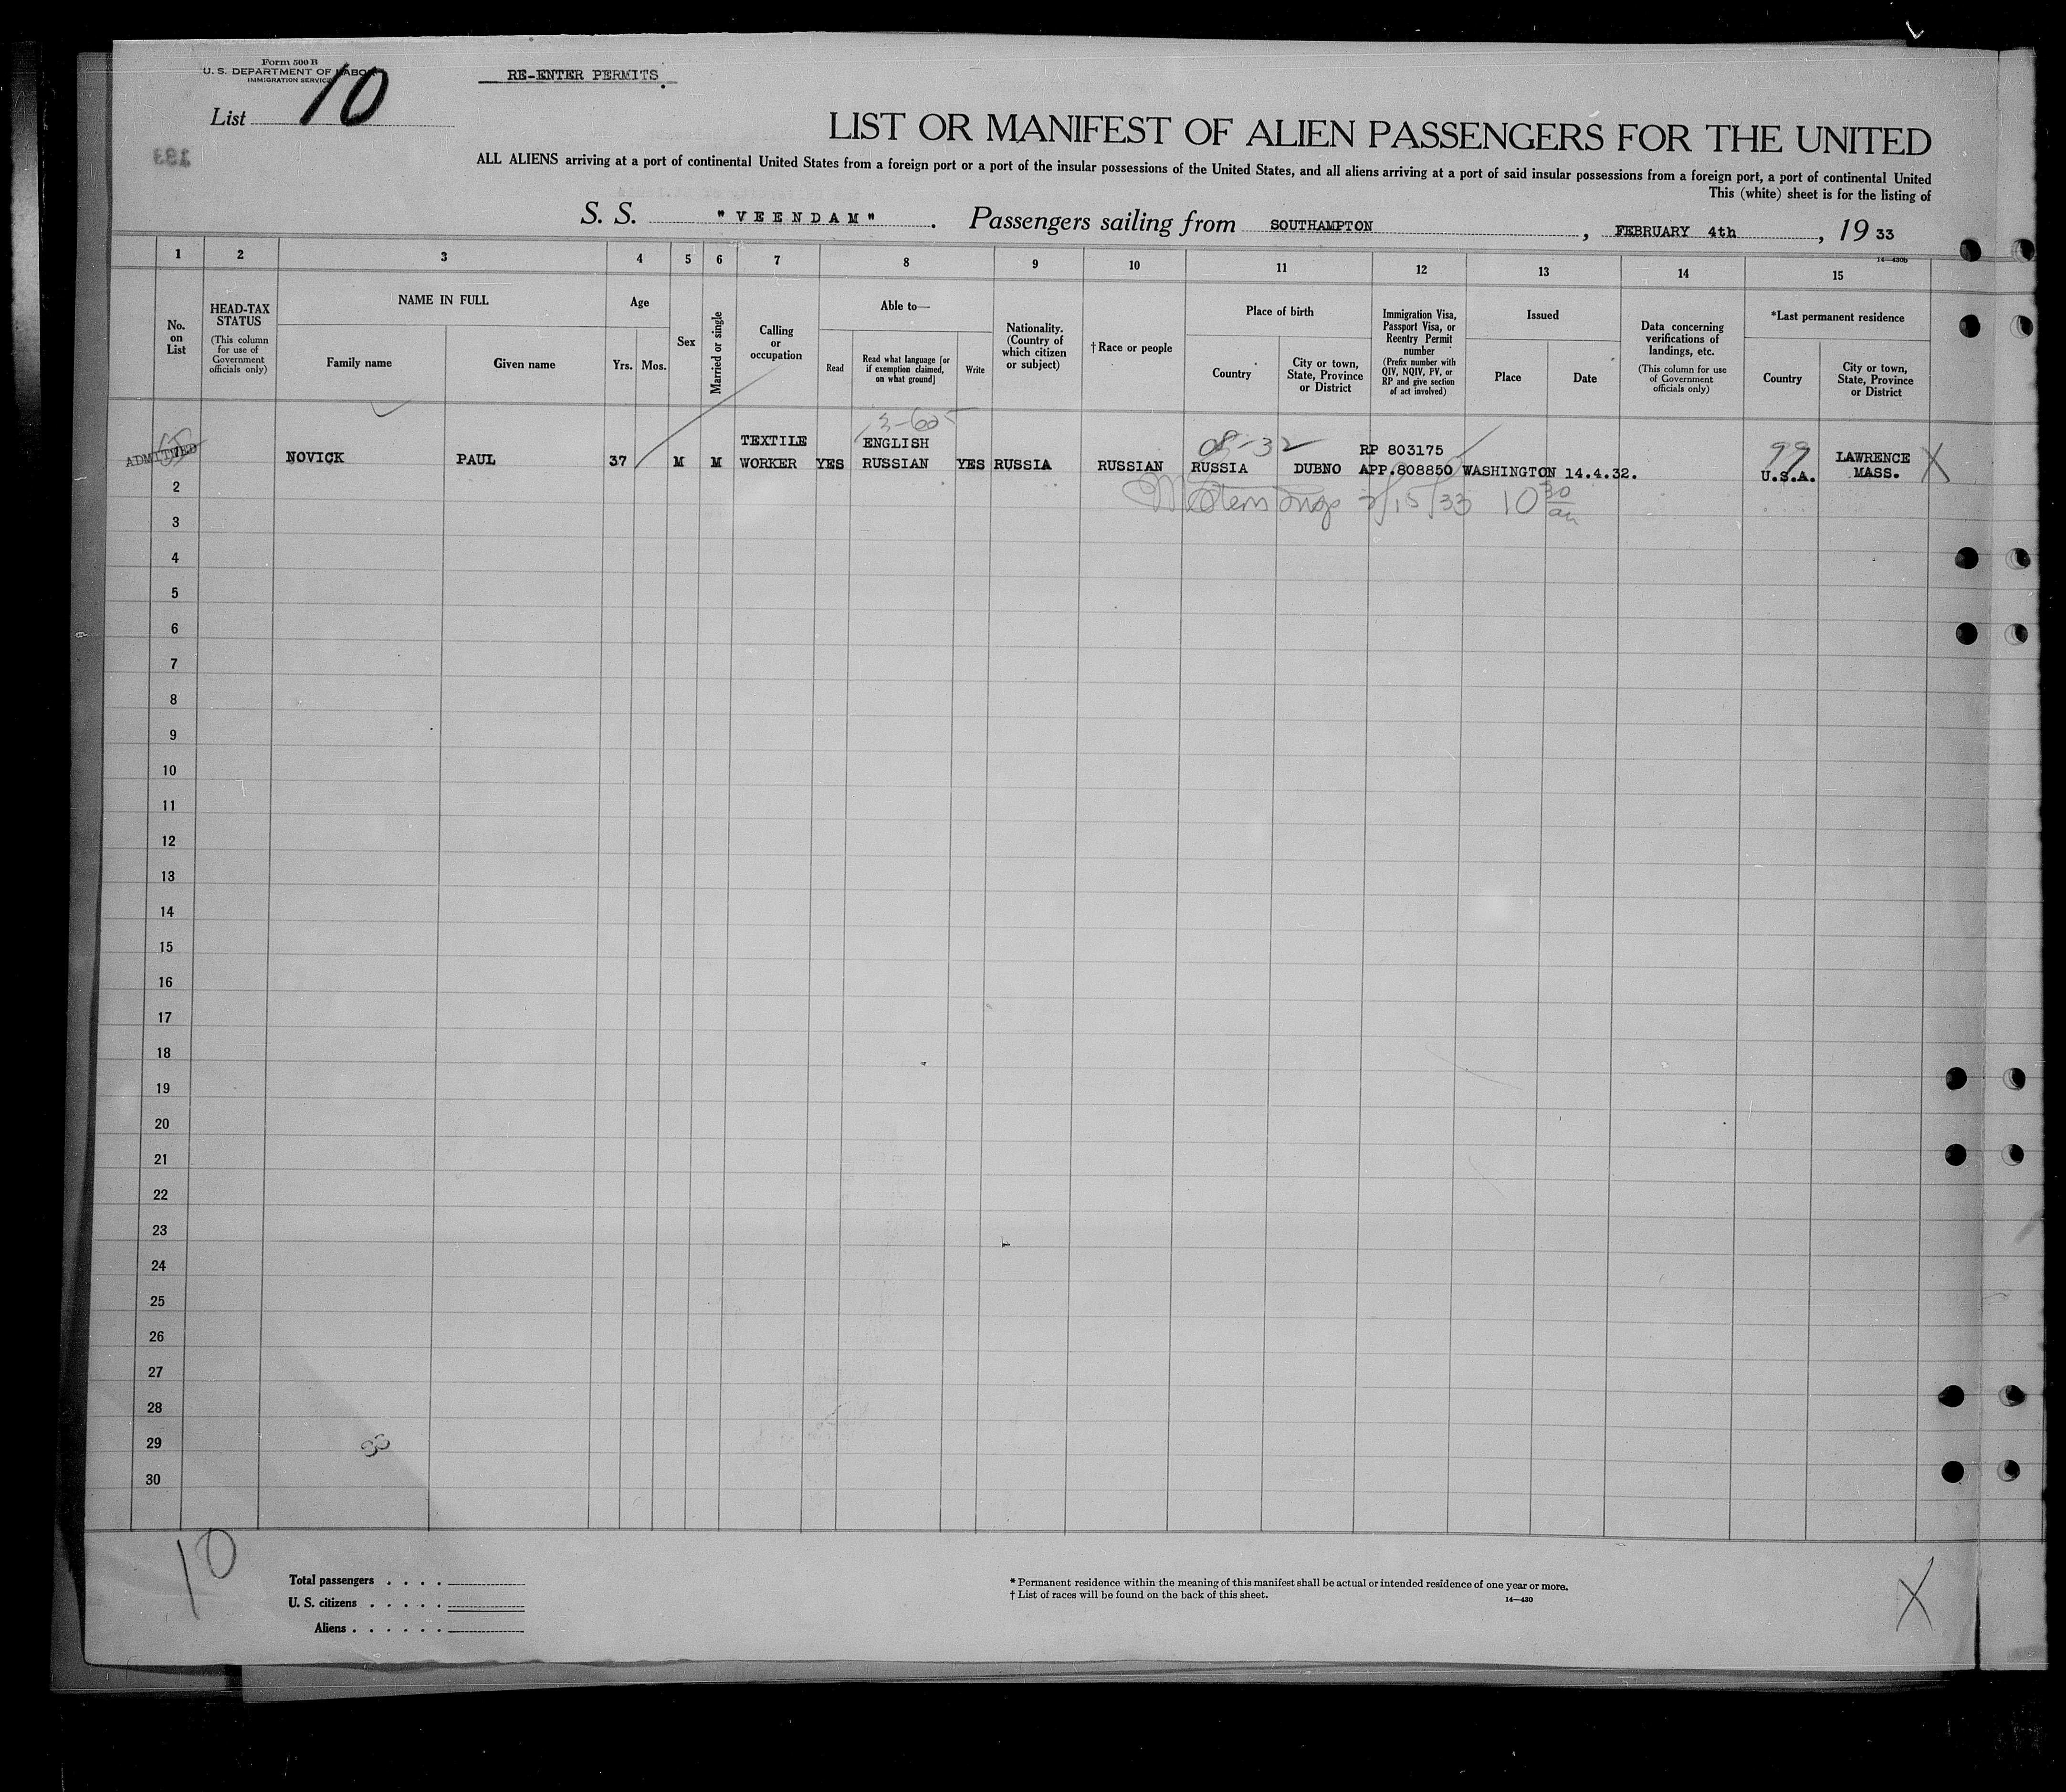 Form 500 B
U. S. DEPARTMENT OF LABOR
IMMIGRATION SERVICE
RE-ENTER PERMITS
List 10
LIST OR MANIFEST OF ALIEN PASSENGERS FOR THE UNITED
ALL ALIENS arriving at a port of continental United States from a foreign port or a port of the insular possessions of the United States, and all aliens arriving at a port of said insular possessions from a foreign port, a port of continental United
This (white) sheet is for the listing of
S. S. "VEENDAM". Passengers sailing from SOUTHAMPTON, FEBRUARY 4th, 19 33
1 2 3 4 5 6 7 8 9 10 11 12 13 14 15
14—430b
No. on List
HEAD-TAX STATUS
(This column for use of Government officials only)
NAME IN FULL
Family name
Given name
Age
Yrs.
Mos.
Sex
Married or single
Calling or occupation
Able to—
Read
Read what language [or if exemption claimed, on what ground]
Write
Nationality. (Country of which citizen or subject)
† Race or people
Place of birth
Country
City or town, State, Province or District
Immigration Visa, Passport Visa, or Reentry Permit number
(Prefix number with QIV, NQIV, PV, or RP and give section of act involved)
Issued
Place
Date
Data concerning verifications of landings, etc.
(This column for use of Government officials only)
*Last permanent residence
Country
City or town, State, Province or District
3-605
08-32
99
TEXTILE ENGLISH RP 803175 LAWRENCE
ADMITTED NOVICK PAUL 37 M M WORKER YES RUSSIAN YES RUSSIA RUSSIAN RUSSIA DUBNO APP.808850 WASHINGTON 14.4.32. U.S.A. MASS. X
2/15/33 10 30 am
2
3
4
5
6
7
8
9
10
11
12
13
14
15
16
17
18
19
20
21
22
23
24
25
26
27
28
29
30
10
Total passengers . . . .
U. S. citizens . . . . .
Aliens . . . . . .
* Permanent residence within the meaning of this manifest shall be actual or intended residence of one year or more.
† List of races will be found on the back of this sheet.
14—430
X